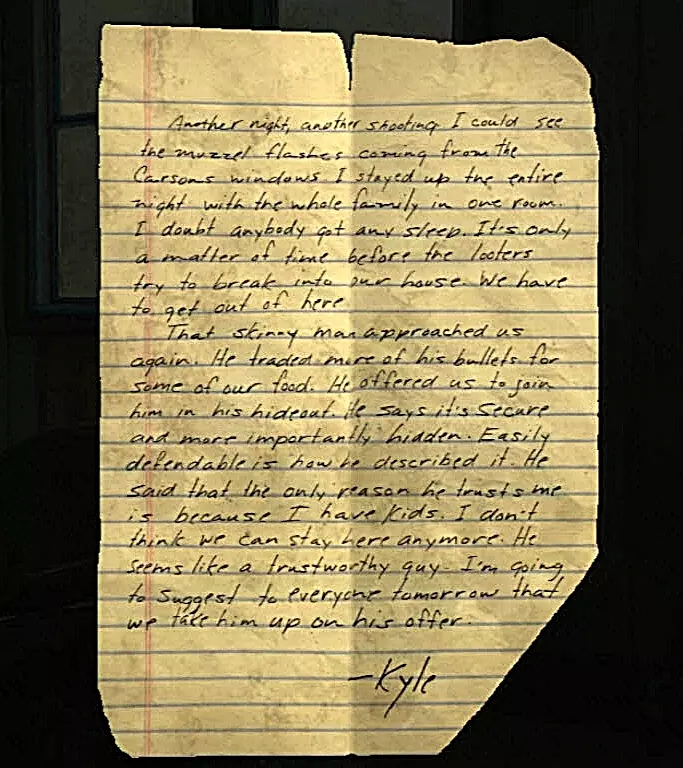 Another night, another shooting I could see
the muzzel flashes coming from the
Carsons windows. I stayed up the entire
night with the whole family in one room.
I doubt anybody got any sleep. It's only
a matter of time before the looters
try to break into our house. We have
to get out of here
That skinny man approached us
again. He traded more of his bullets for
some of our food. He offered us to join
him in his hideout. He says it's secure
and more importantly hidden. Easily
defendable is how he described it. He
said that the only reason he trusts me
is because I have kids. I don't
think we can stay here anymore. He
seems like a trustworthy guy. I'm going
to suggest to everyone tomorrow that
we take him up on his offer.
-Kyle